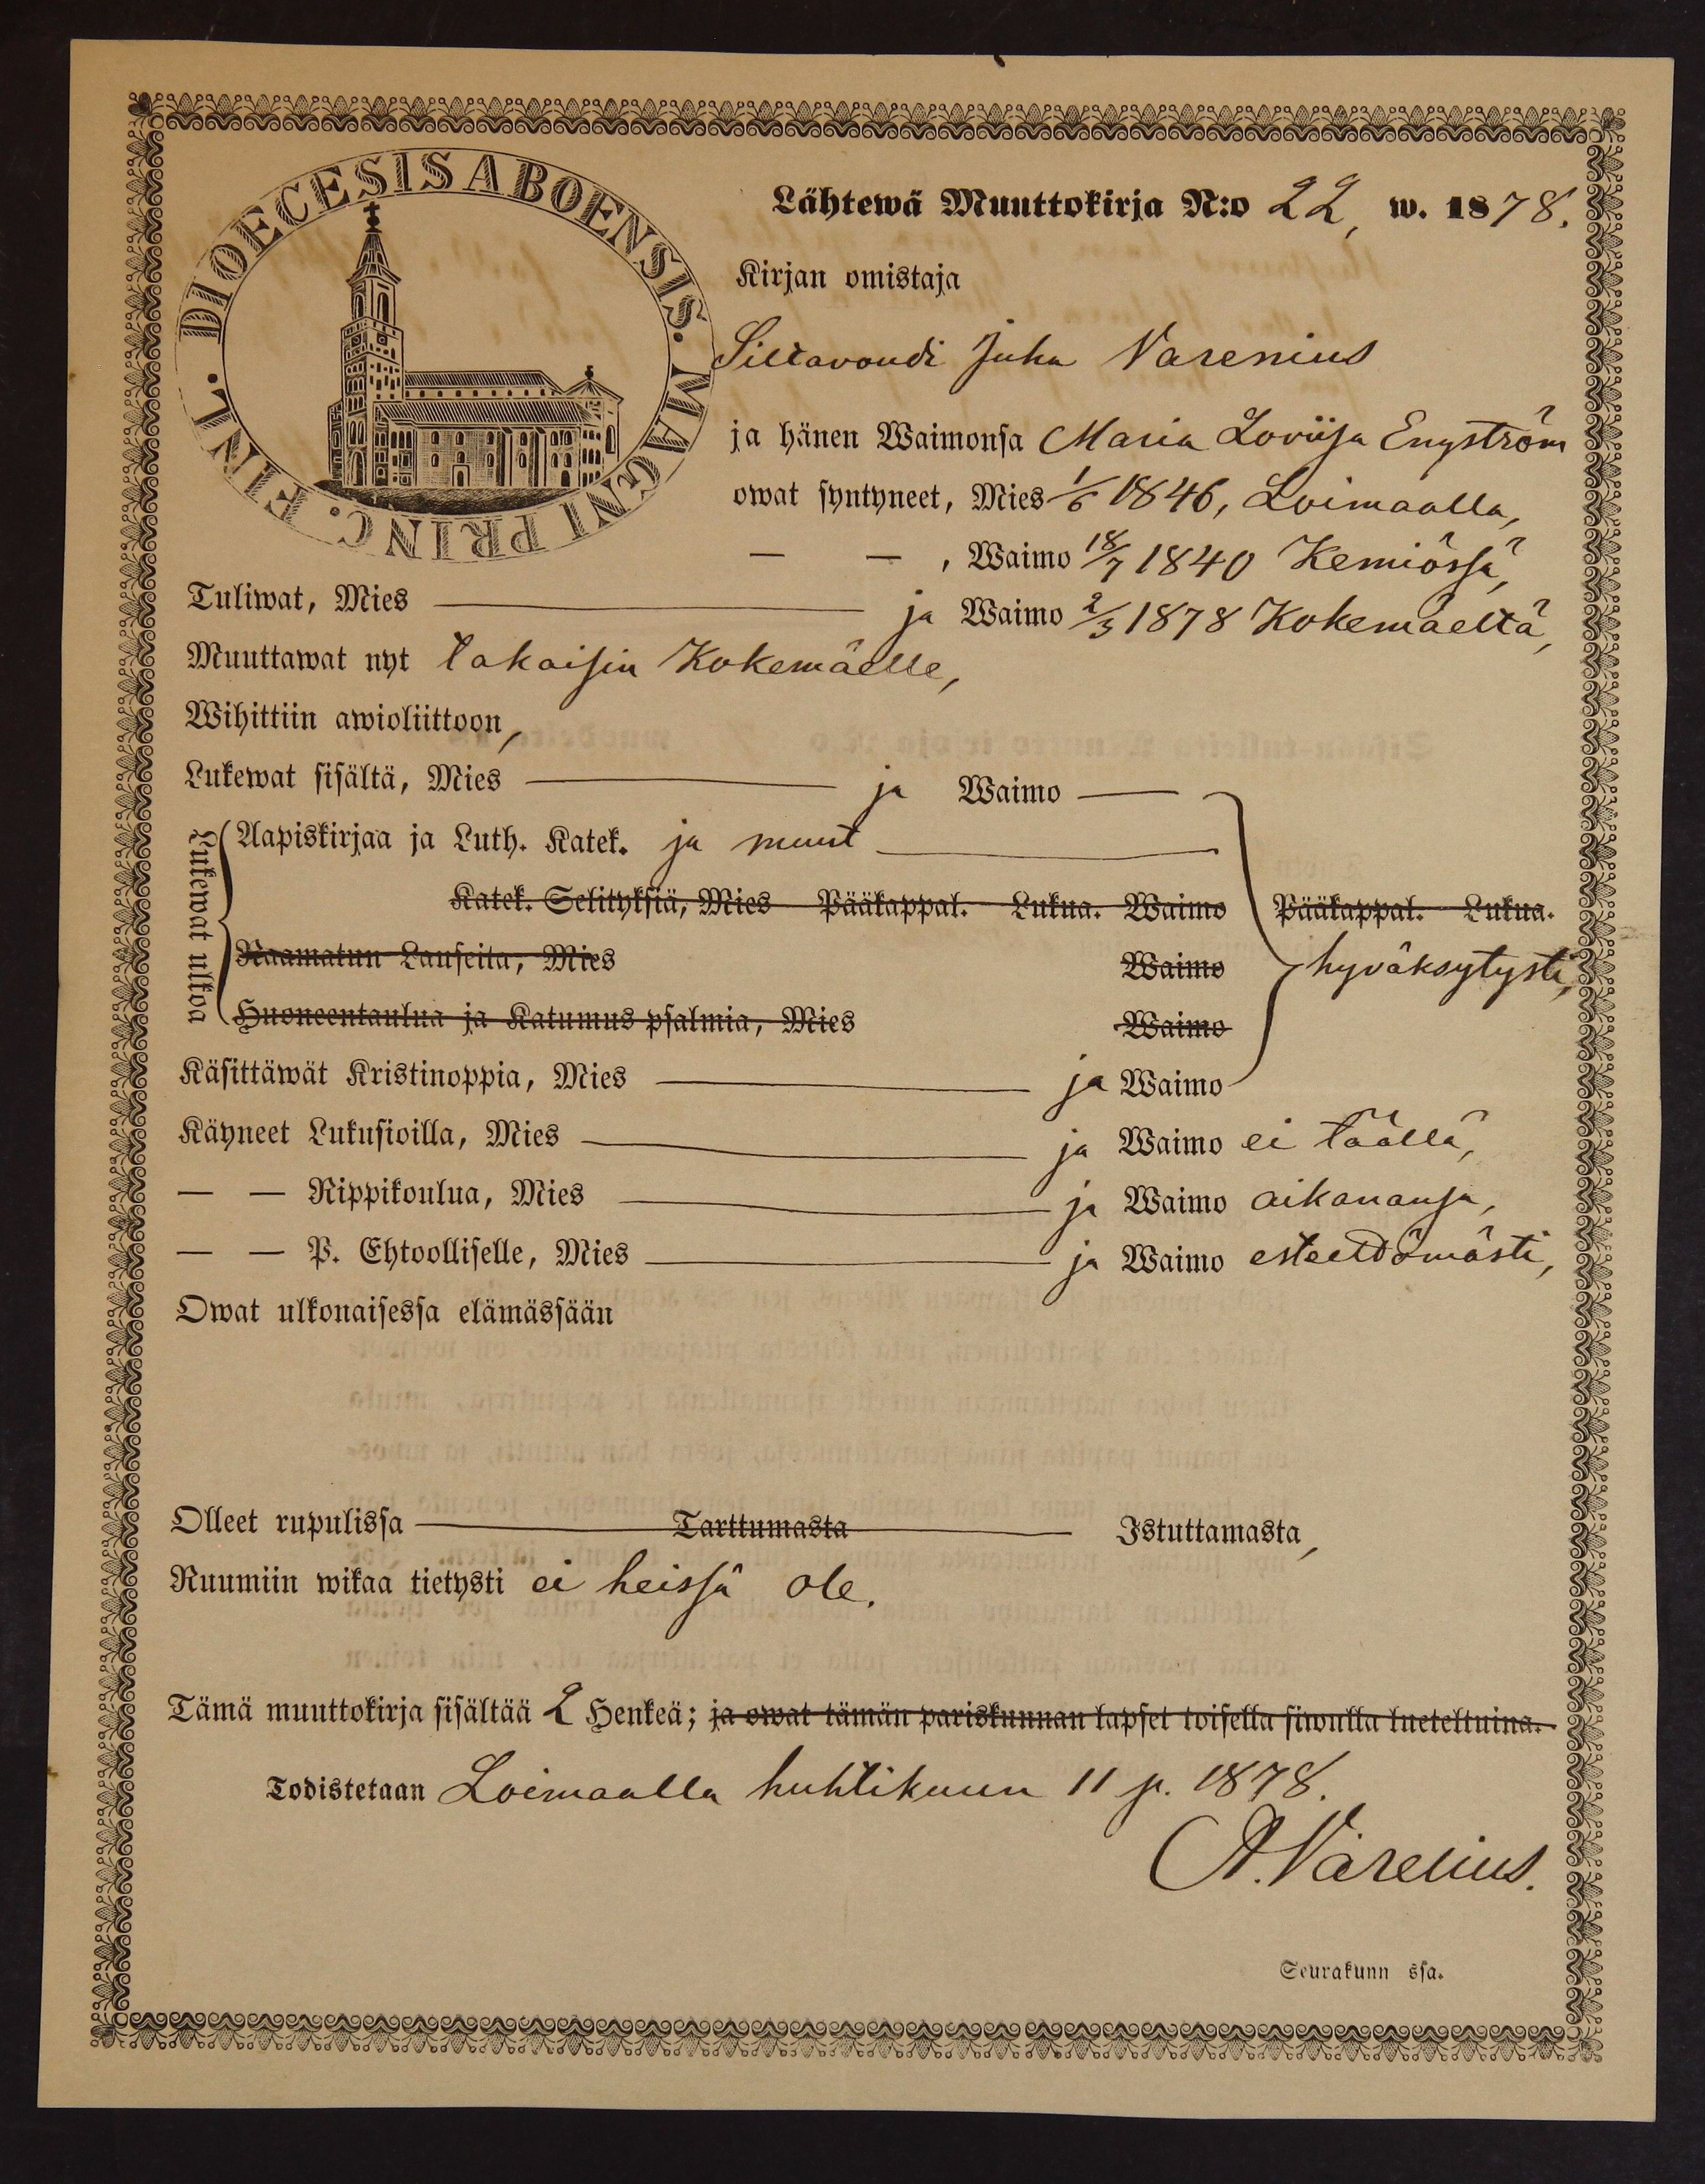 DIOECESIS ABOENSIS. MAGNI PRINC. FINL.
Lähtewä Muuttokirja N:o 22, w. 1878.
Kirjan omistaja
Siltavoudi Juha Varenius
ja hänen Waimonsa Maria Loviisa Engström
owat syntyneet, Mies 1/6 1846, Loimaalla,
— — , Waimo 18/7 1840 Kemiössä,
Tuliwat, Mies ——— ja Waimo 2/3 1878 Kokemäeltä,
Muuttawat nyt takaisin Kokemäelle,
Wihittiin awioliittoon,
Lukewat sisältä, Mies ——— ja Waimo —
Lukewat ulkoa
Aapiskirjaa ja Luth. Katek. ja muut ———
Katek. Selityksiä, Mies Pääkappal. Lukua. Waimo Pääkappal. Lukua.
Raamatun Lauseita, Mies Waimo hyväksytysti,
Huoneentaulua ja Katumus psalmia, Mies Waimo
Käsittäwät Kristinoppia, Mies ——— ja Waimo
Käyneet Lukusioilla, Mies ——— ja Waimo ei täällä,
— — Rippikoulua, Mies ——— ja Waimo aikanansa,
— — P. Ehtoolliselle, Mies ——— ja Waimo esteettömästi,
Owat ulkonaisessa elämässään
Olleet rupulissa ——— Tarttumasta ——— Istuttamasta,
Ruumiin wikaa tietysti ei heissä ole.
Tämä muuttokirja sisältää 2 Henkeä; ja owat tämän pariskunnan lapset toisella siwulla lueteltuina.
Todistetaan Loimaalla huhtikuun 11 p. 1878.
A. Varelius.
Seurakunn ssa.